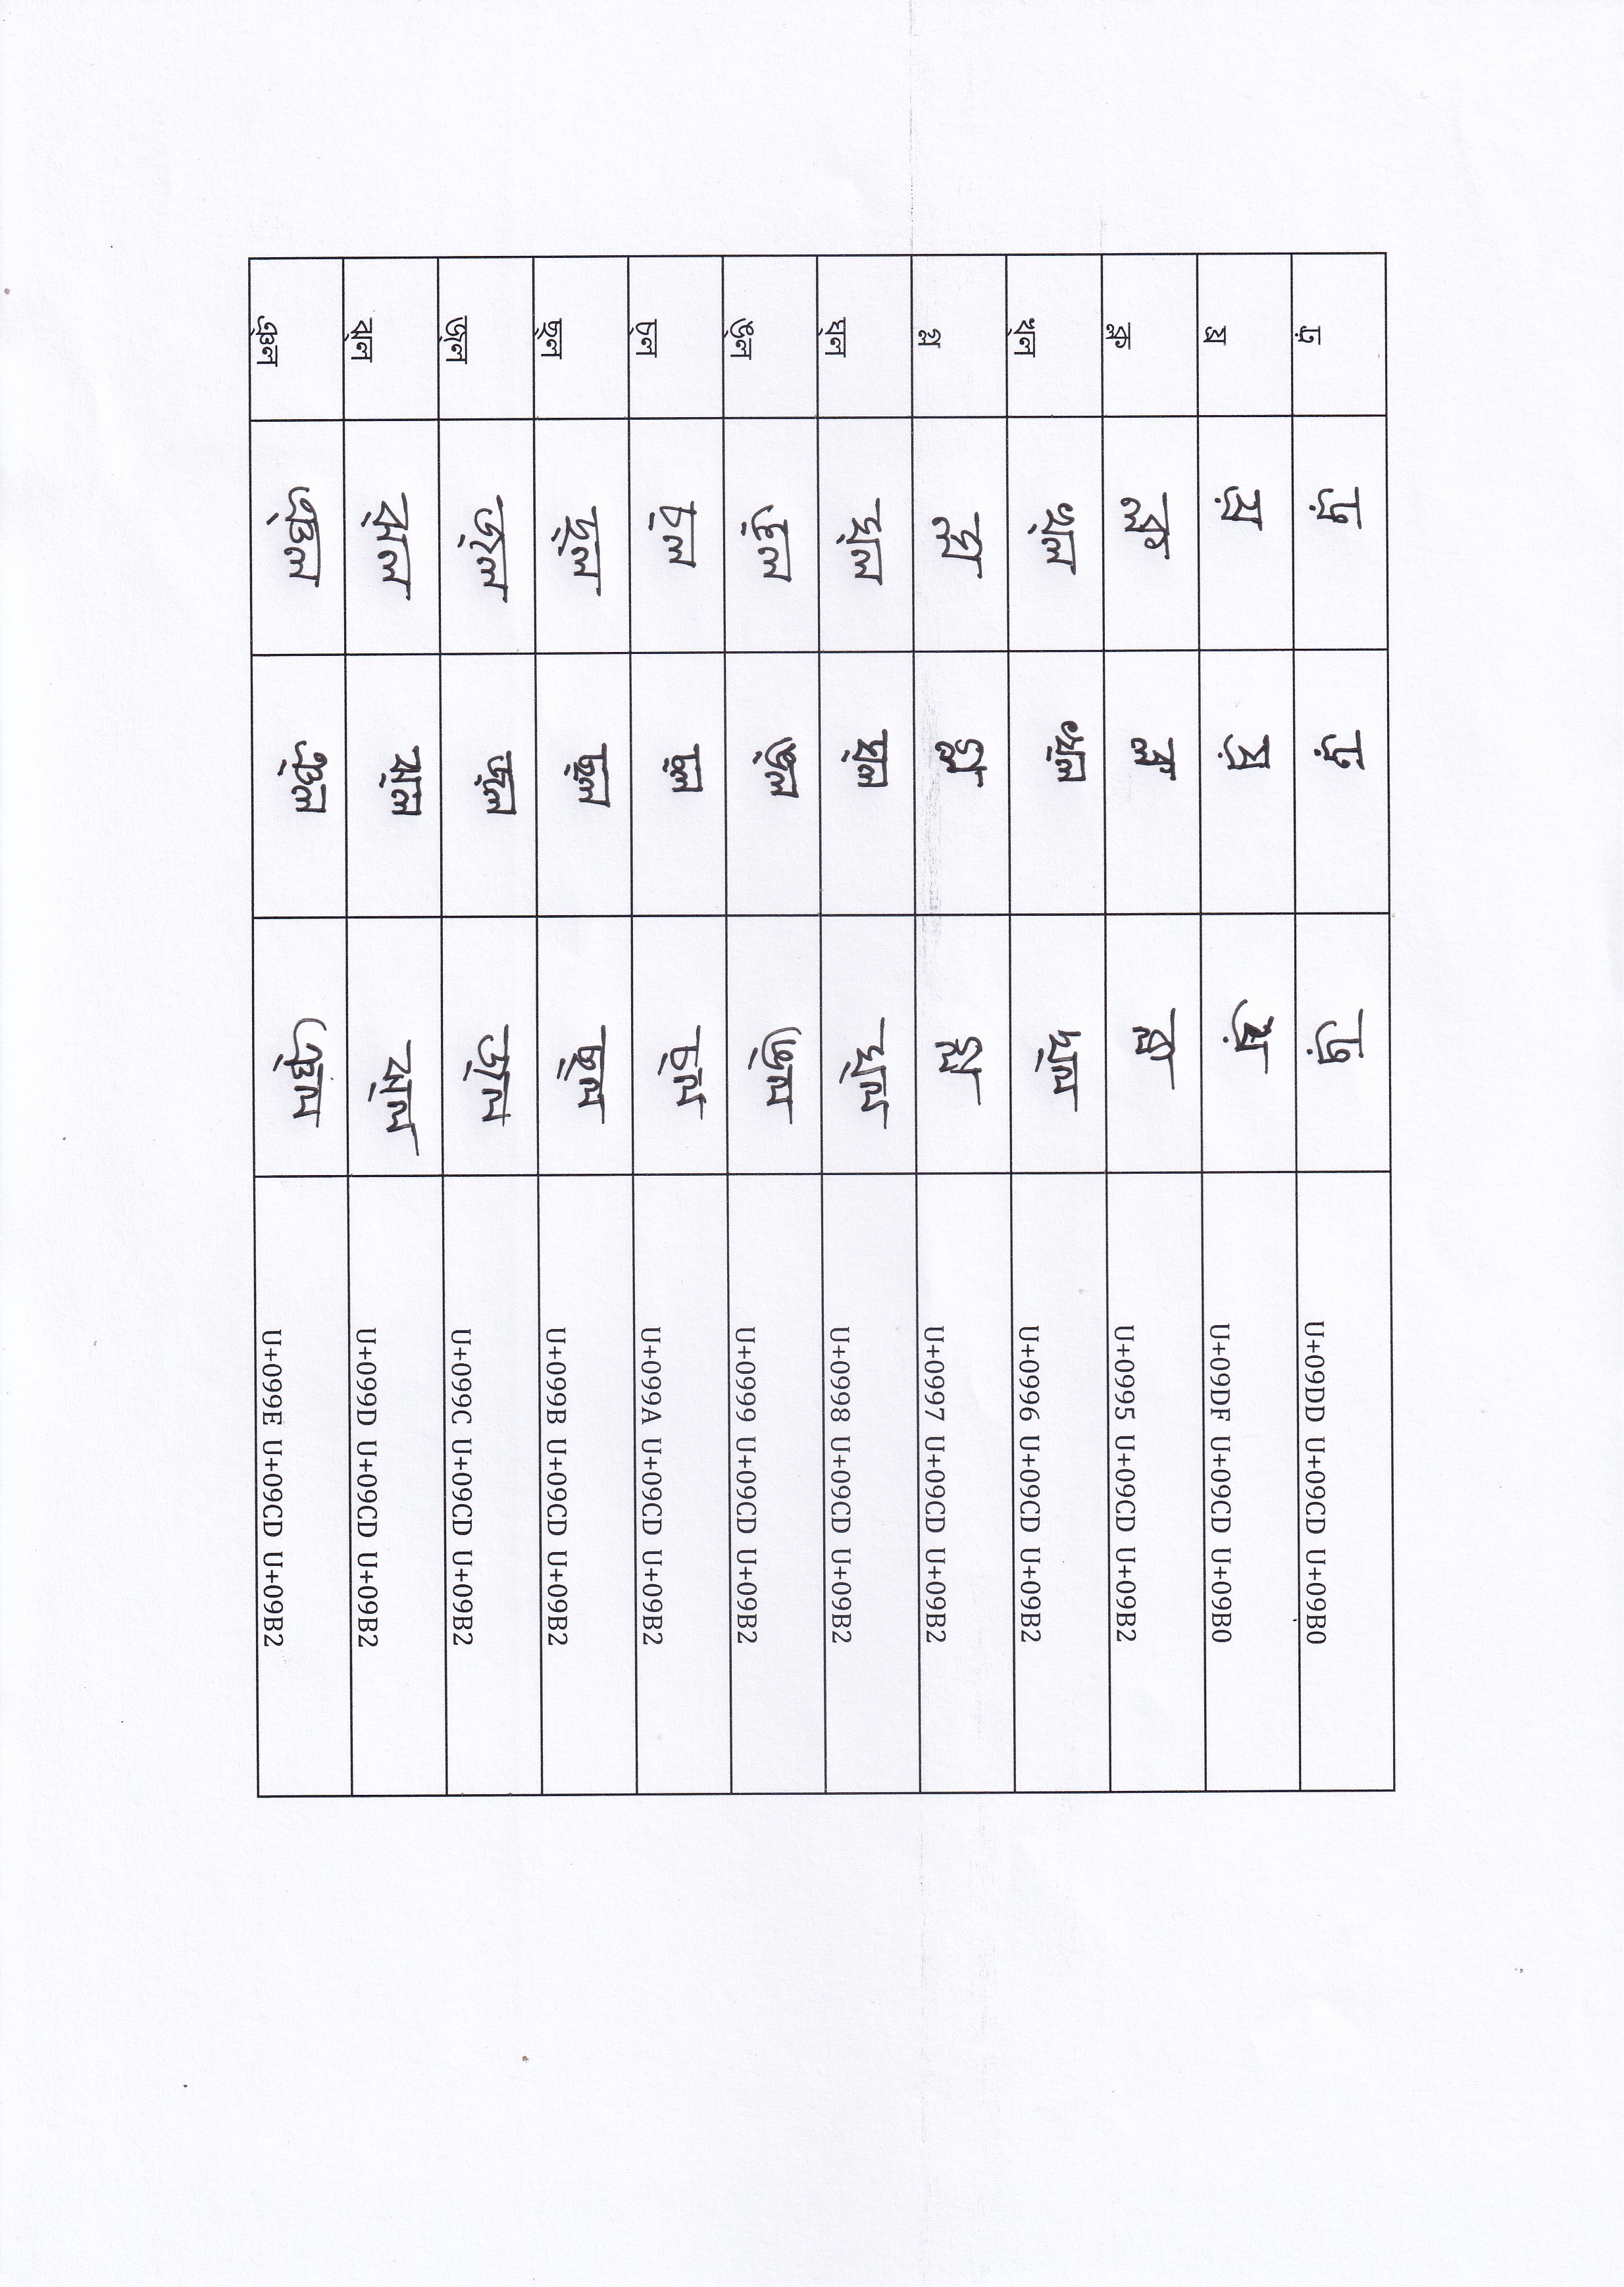 ঢ়্র ঢ়্র ঢ়্র ঢ়্র U+09DD U+09CD U+09B0
য়্র য়্র য়্র য়্র U+09DF U+09CD U+09B0
ক্ল ক্ল ক্ল ক্ল U+0995 U+09CD U+09B2
খ্ল খ্ল খ্ল খ্ল U+0996 U+09CD U+09B2
গ্ল গ্ল গ্ল গ্ল U+0997 U+09CD U+09B2
ঘ্ল ঘ্ল ঘ্ল ঘ্ল U+0998 U+09CD U+09B2
ঙ্ল ঙ্ল ঙ্ল ঙ্ল U+0999 U+09CD U+09B2
চ্ল চ্ল চ্ল চ্ল U+099A U+09CD U+09B2
ছ্ল ছ্ল ছ্ল ছ্ল U+099B U+09CD U+09B2
জ্ল জ্ল জ্ল জ্ল U+099C U+09CD U+09B2
ঝ্ল ঝ্ল ঝ্ল ঝ্ল U+099D U+09CD U+09B2
ঞ্ল ঞ্ল ঞ্ল ঞ্ল U+099E U+09CD U+09B2